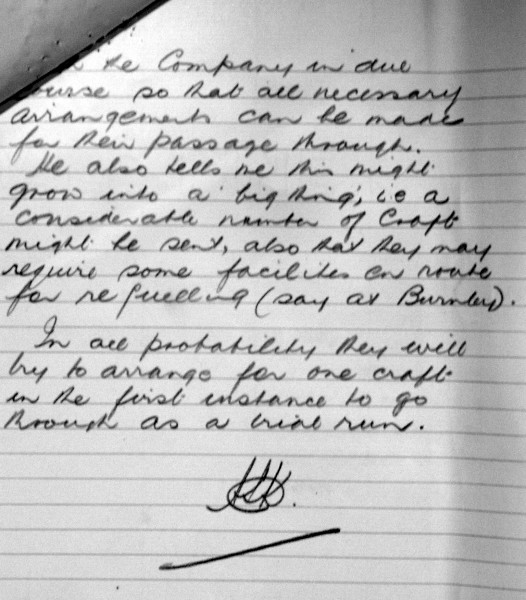 the Company in due
course so that all necessary
arrangements can be made
for their passage through.
He also tells me this might
grow into a 'big thing', i.e a
considerable number of Craft
might be sent, also that they may
require some facilities en route
for refuelling (say at Burnley).
In all probability they will
try to arrange for one craft
in the first instance to go
through as a trial run.